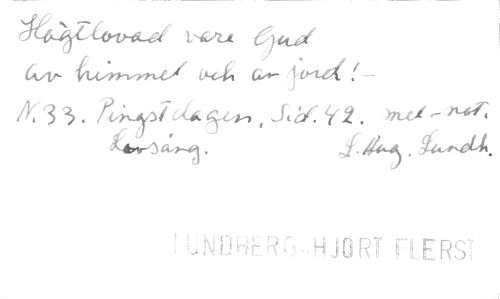 Högtlovad vare Gud
av himmel och av jord! -
N. 33. Pingstdagen, Sid. 42. mel-not.
Lovsång. L. Aug. Lundh.
LUNDBERG-HJORT FLERST